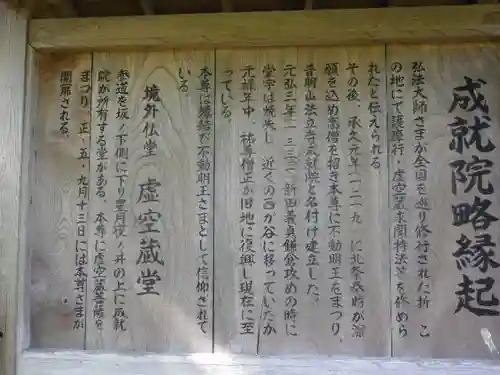 成就院略縁起
弘法大師さまが全国を巡り修行された折、こ
の地にて護摩行・虚空蔵求聞持法等を修めら
れたと伝えられる
その後、承久元年(一二一九)に北条泰時が深
願を込め高僧を招き本尊に不動明王をまつり、
普明山法立寺成就院と名付け建立した。
元弘三年(一三三三)新田義貞鎌倉攻めの時に
堂宇は焼失し、近くの西が谷に移っていたが
元禄年中、祐尊僧正が旧地に復興し現在に至
っている。
本尊は縁結び不動明王さまとして信仰されて
いる。
境外仏堂 虚空蔵堂
参道を坂ノ下側に下り星月夜ノ井の上に成就
院が所有する堂がある。本尊に虚空蔵菩薩を
まつり、正・五・九月十三日には本尊さまが
開帳される。